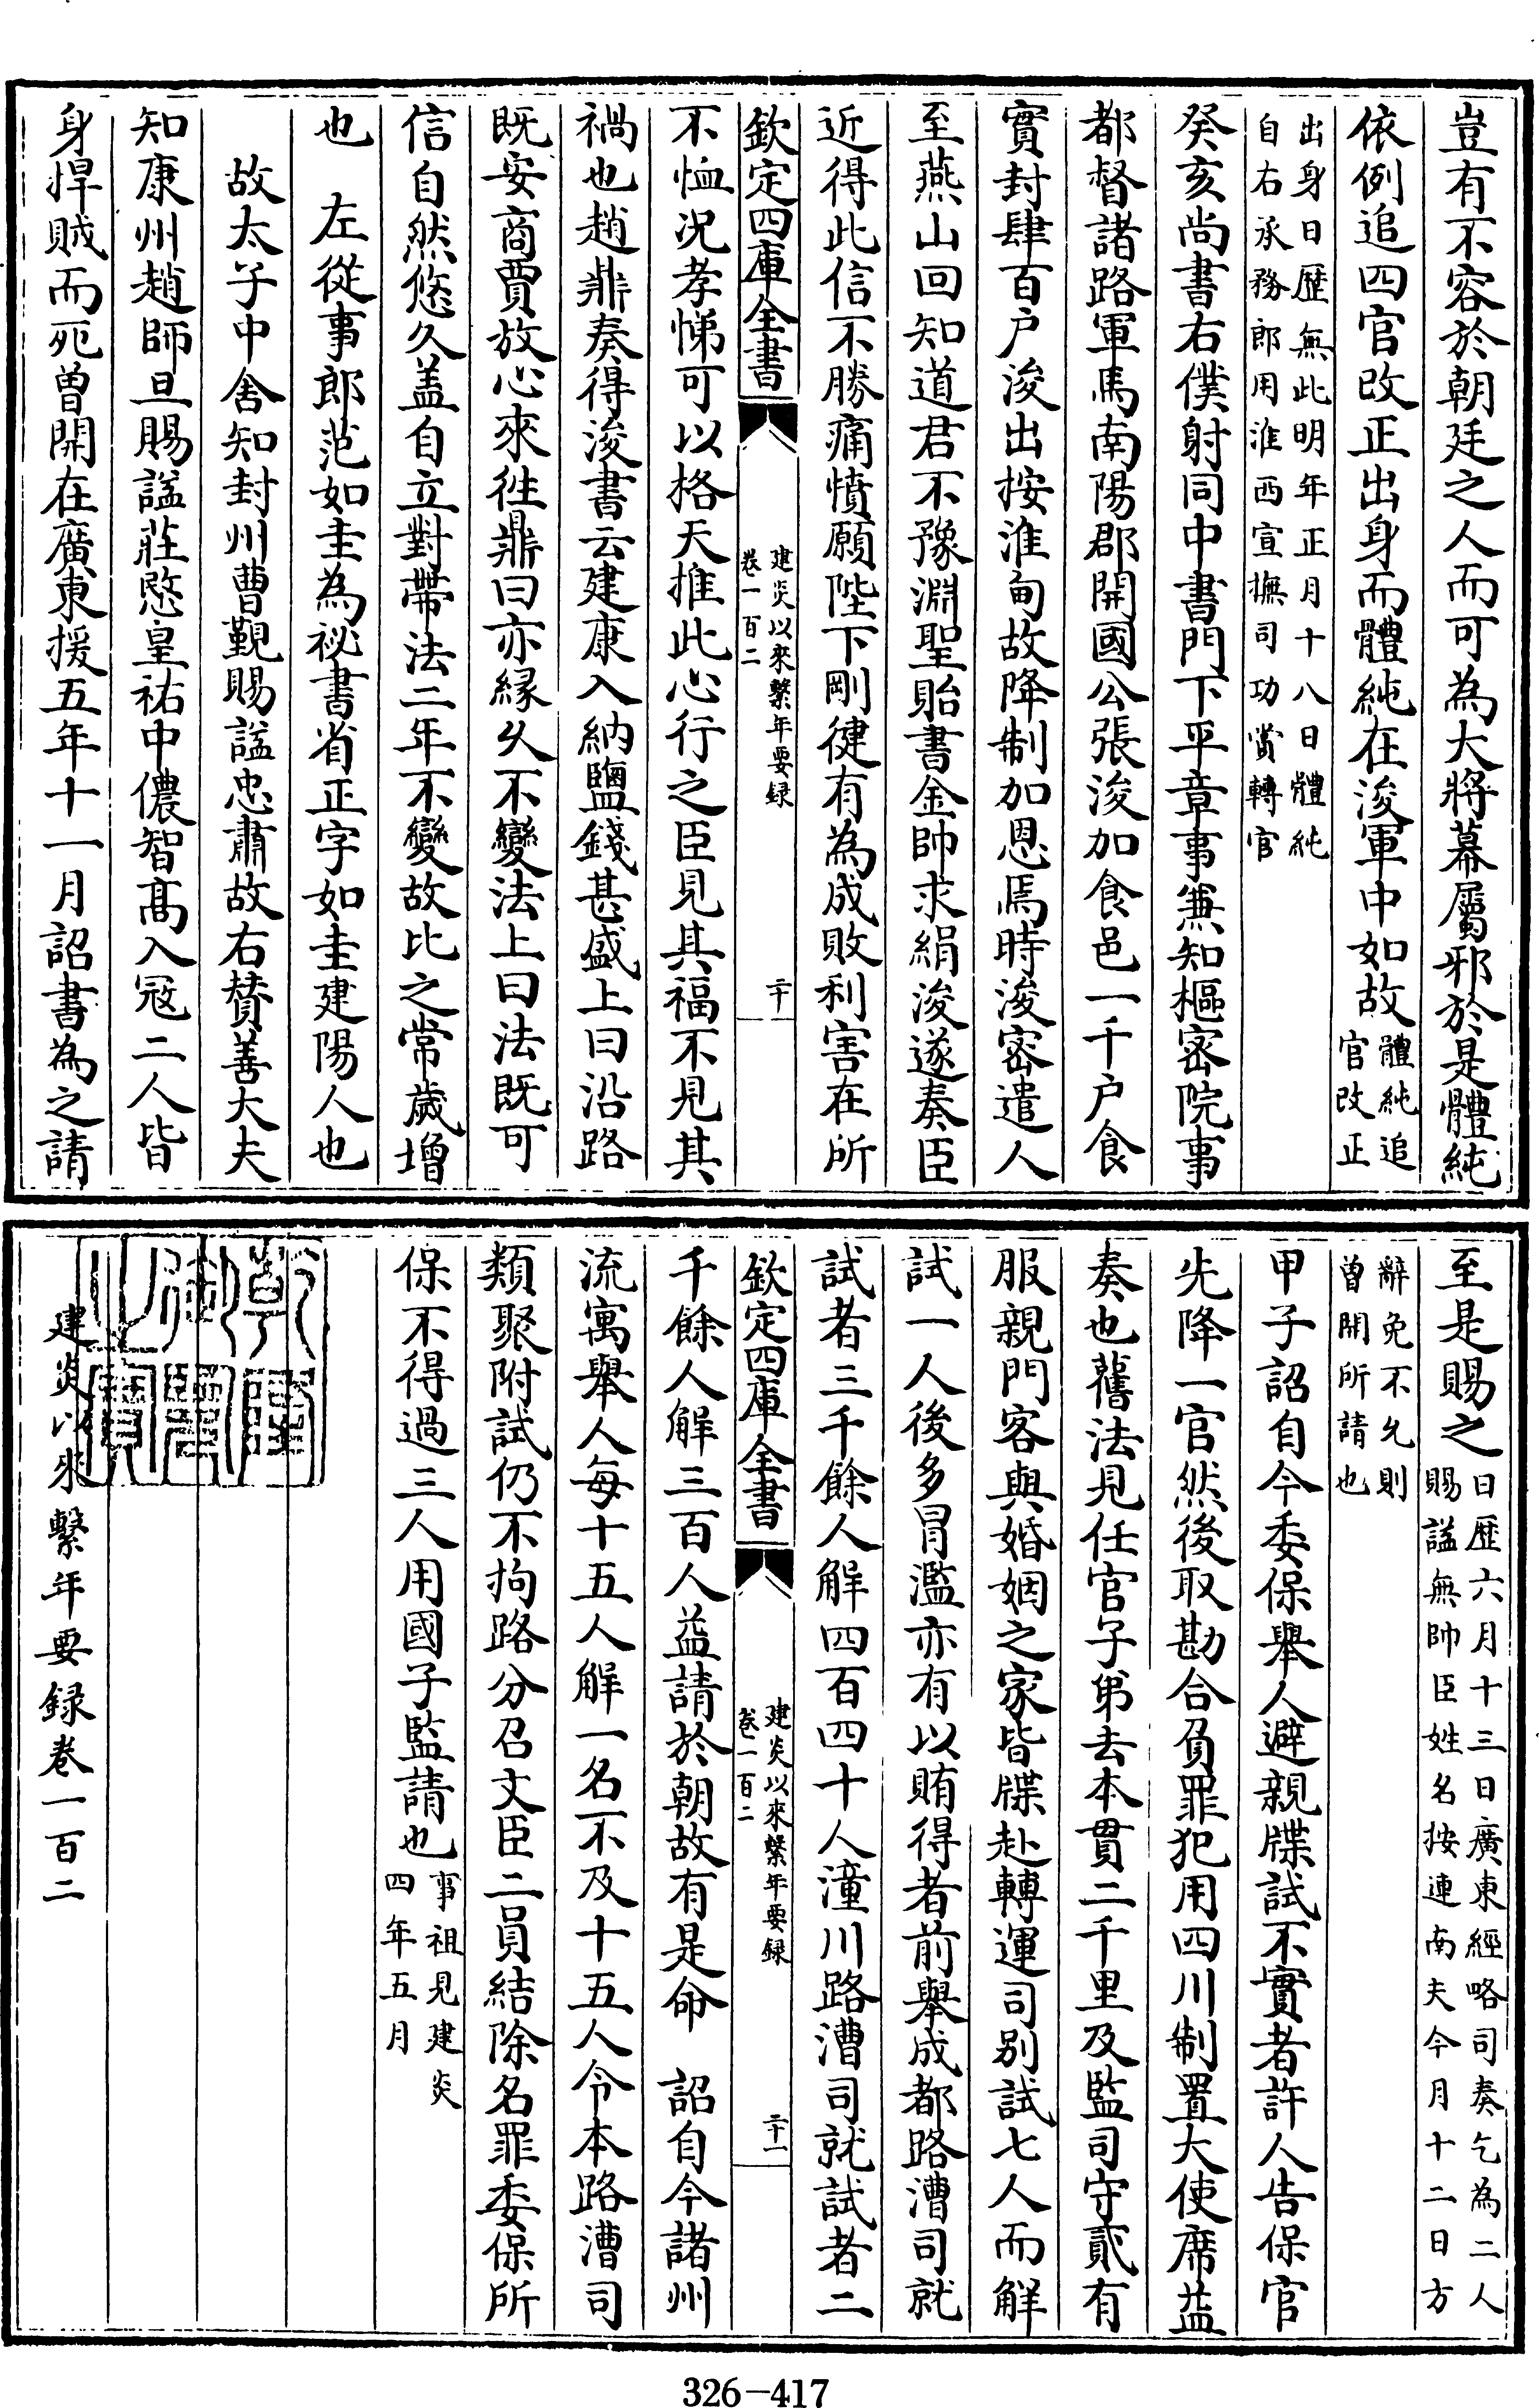 豈有不容於朝廷之人而可為大將幕屬邪於是體純
依例追四官改正出身而體純在浚軍中如故體純追官改正
出身日歴無此明年正月十八日體純
自右承務郎用淮西宣撫司功賞轉官
癸亥尚書右僕射同中書門下平章事兼知樞密院事
都督諸路軍馬南陽郡開國公張浚加食邑一千户食
實封肆百户浚出按淮甸故降制加恩焉時浚密遣人
至燕山回知道君不豫淵聖貽書金帥求絹浚遂奏臣
近得此信不勝痛憤願陛下剛健有為成敗利害在所
欽定四庫全書
建炎以來繫年要録
卷一百二
二十
不恤況孝悌可以格天推此心行之臣見其福不見其
禍也趙鼎奏得浚書云建康入納鹽錢甚盛上曰沿路
既安商賈放心來往鼎曰亦縁久不變法上曰法既可
信自然悠久盖自立對帶法二年不變故比之常歲增
也　左從事郎范如圭為祕書省正字如圭建陽人也
故太子中舍知封州曹覲賜諡忠肅故右贊善大夫
知康州趙師旦賜諡莊愍皇祐中儂智髙入冦二人皆
身捍賊而死曾開在廣東援五年十一月詔書為之請
至是賜之日歴六月十三日廣東經略司奏乞為二人
賜諡無帥臣姓名按連南夫今月十二日方
辭免不允則
曽開所請也
甲子詔自今委保舉人避親牒試不實者許人告保官
先降一官然後取勘合負罪犯用四川制置大使席益
奏也舊法見任官子弟去本貫二千里及監司守貳有
服親門客與婚姻之家皆牒赴轉運司别試七人而解
試一人後多冒濫亦有以賄得者前舉成都路漕司就
試者三千餘人解四百四十人潼川路漕司就試者二
欽定四庫全書
建炎以來繫年要録
卷一百二
二十一
千餘人解三百人益請於朝故有是命　詔自今諸州
流寓舉人每十五人解一名不及十五人令本路漕司
類聚附試仍不拘路分召文臣二員結除名罪委保所
保不得過三人用國子監請也事祖見建炎四年五月
建炎以來繫年要録卷一百二
乾隆御覽之寶
326-417